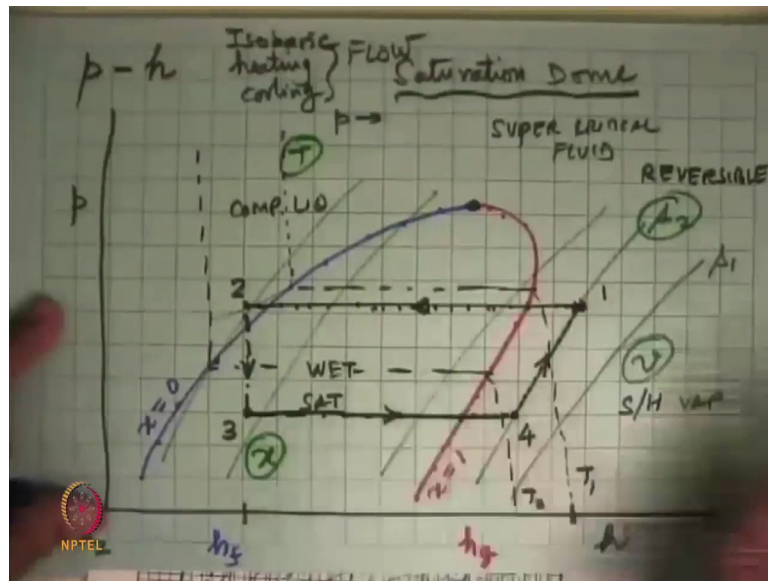 p - h
Isobaric
heating
cooling
FLOW
Saturation Dome
p →
SUPER CRITICAL
FLUID
T
REVERSIBLE
p
COMP. LIQ
s₂
s₁
2
1
WET
SAT
v
S/H VAP
x=0
3
x
4
x=1
T₁
NPTEL
h